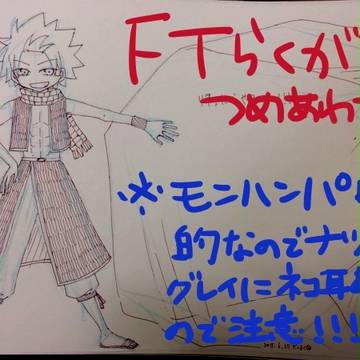 FTらくが
つめあわ
※モンハンパ
的なのでナツ
グレイにネコ耳
ので注意!!!